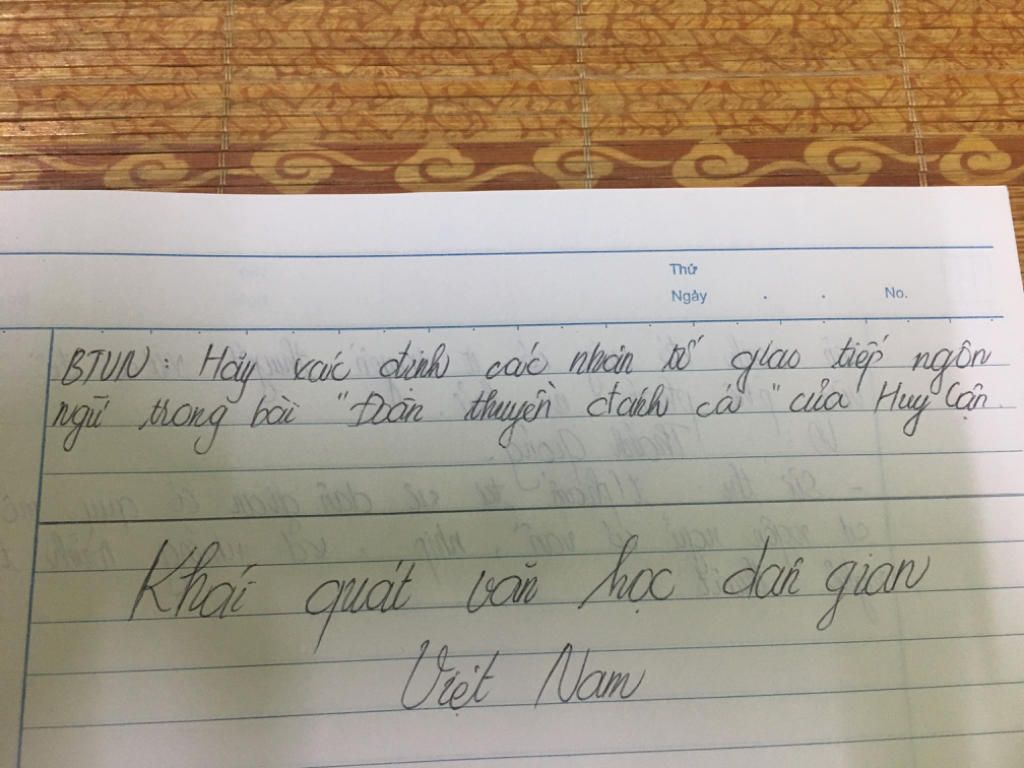 Thứ
Ngày . . No.
BTVN: Hãy xác định các nhân tố giao tiếp ngôn
ngữ trong bài "Đoàn thuyền đánh cá" của Huy Cận.
Khái quát văn học dân gian
Việt Nam